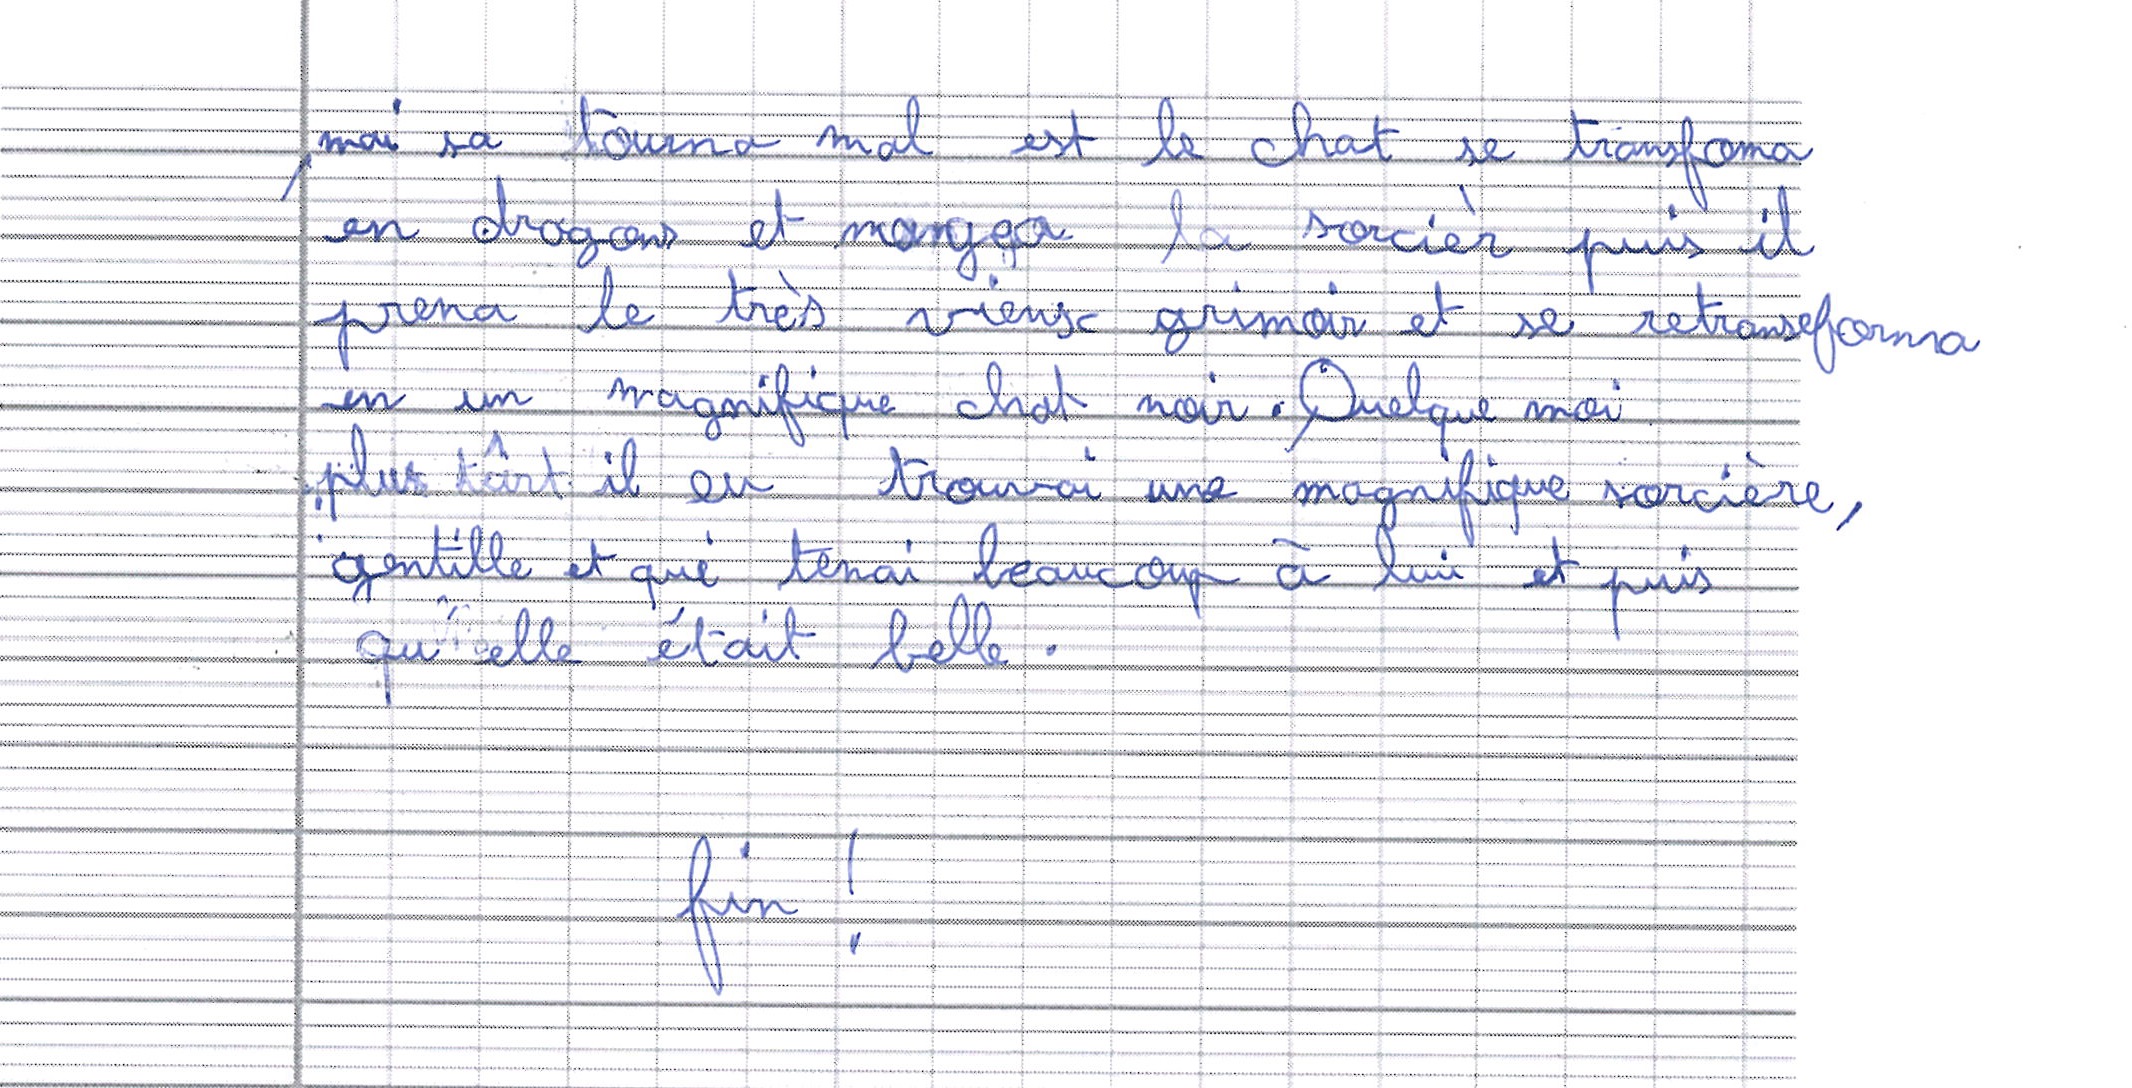 , mai sa tourna mal est le chat se transfoma
en dragons et mangea la sorcièr puis il
prena le très vieux grimoir et se retranseforma
en un magnifique chat noir. Quelque moi
plus târt il en trouvai une magnifique sorcière,
gentille et qui tenai beaucoup à lui et puis
qu'elle était belle.
fin !